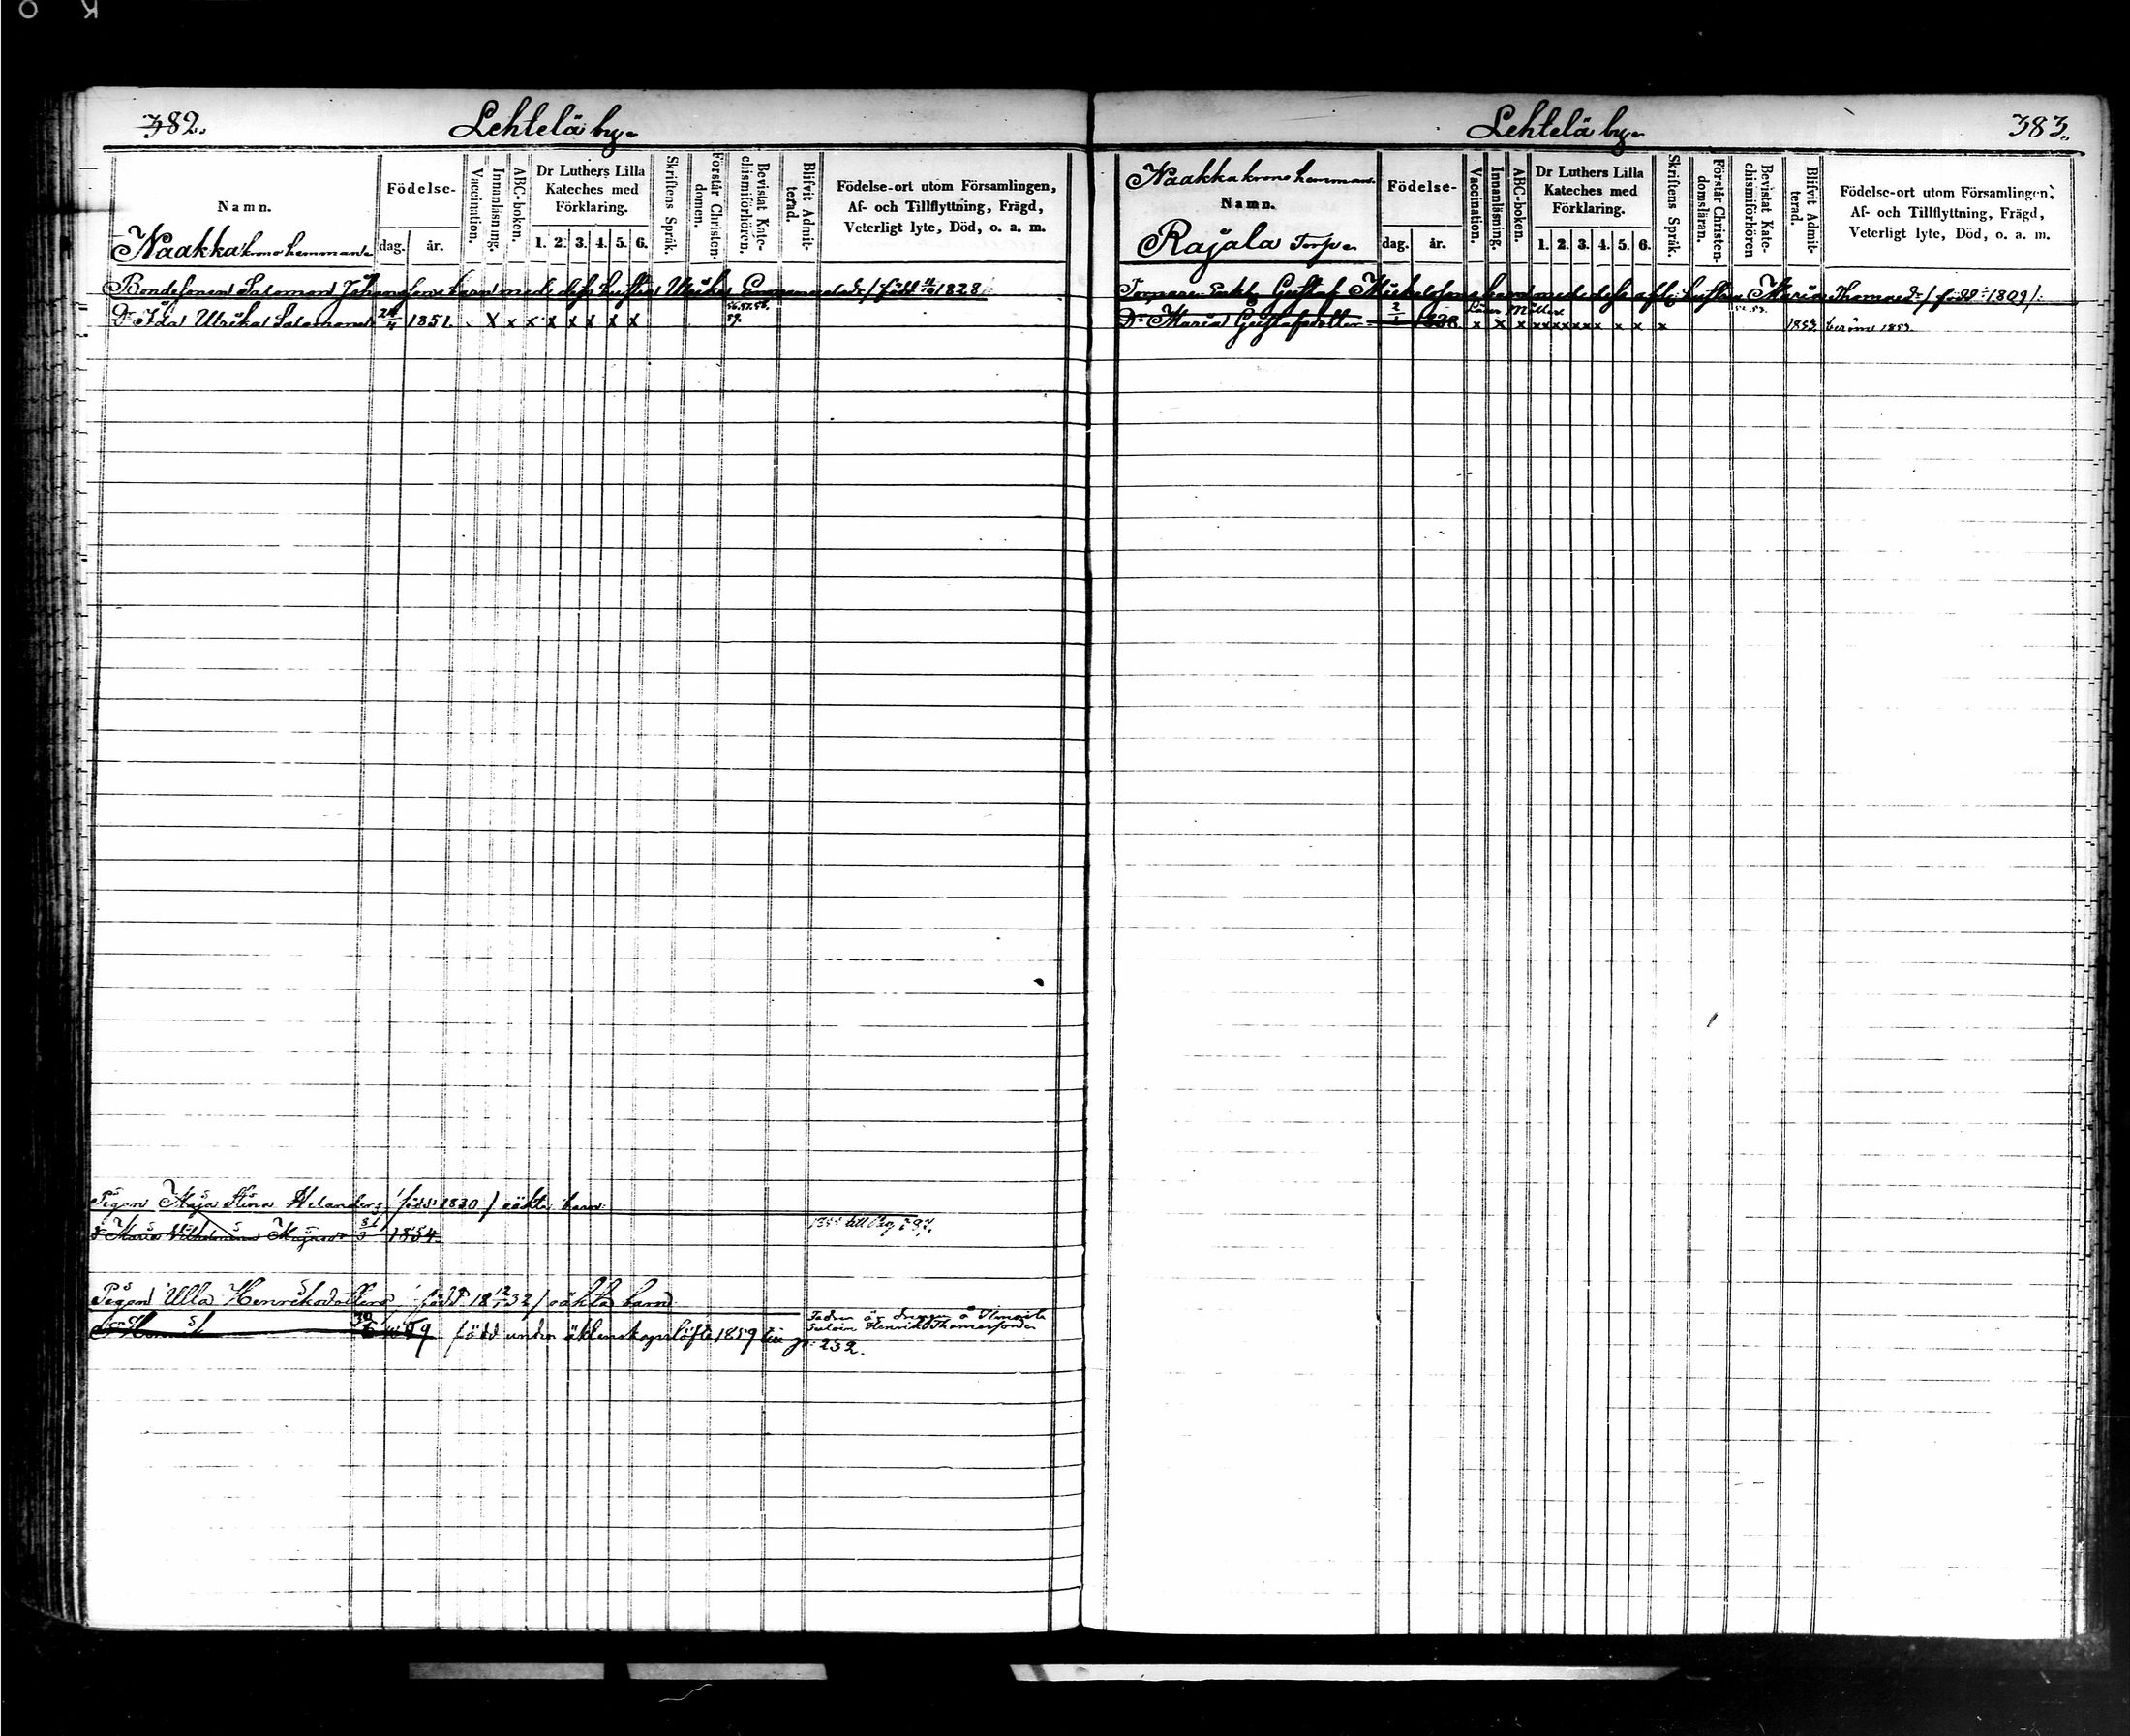 382.
Lehtelä by.
Namn.
Naakka krono hemman.
Födelse-
dag. år.
Vaccination.
Innanläsning.
ABC-boken.
Dr Luthers Lilla
Kateches med
Förklaring.
1. 2. 3. 4. 5. 6.
Skriftens Språk.
Förstår Christen-
domen.
Bevistat Kate-
chismiförhören.
Blifvit Admit-
terad.
Födelse-ort utom Församlingen,
Af- och Tillflyttning, Frägd,
Veterligt lyte, Död, o. a. m.
Bondesonen Salomon Johanssons barn med dess hustru Ulrika född 1828
56.57.58.
Dr Ida Ulrika Salomonsdr 1851. x x x x x x x x x 59.
Pigan Maja Stina Helanders / född 1830 / oäkta barn
Dr Maria Vilhelmina Majasdr 31/3 1854
Pigan Ulla Henriksdotters född 18 12/1 32 / oäkta barn
Fadren är drengen
Henrik Thomasson
född under äktenskapslöfte 1859
232.
Lehtelä by.
383.
Naakka krono hemman.
Namn.
Rajala Torp.
Födelse-
dag. år.
Vaccination.
Innanläsning.
ABC-boken.
Dr Luthers Lilla
Kateches med
Förklaring.
1. 2. 3. 4. 5. 6.
Skriftens Språk.
Förstår Christen-
domsläran.
Bevistat Kate-
chismiförhören
Blifvit Admit-
terad.
Födelse-ort utom Församlingen,
Af- och Tillflyttning, Frägd,
Veterligt lyte, Död, o. a. m.
Torpare Enkl. Gustaf Mickelssons barn med dess afl. hustru Maria Thomasdr / född 1809 /:
Dr Maria Gustafsdotter 2/1 x x x x x x x x x x x x 1853